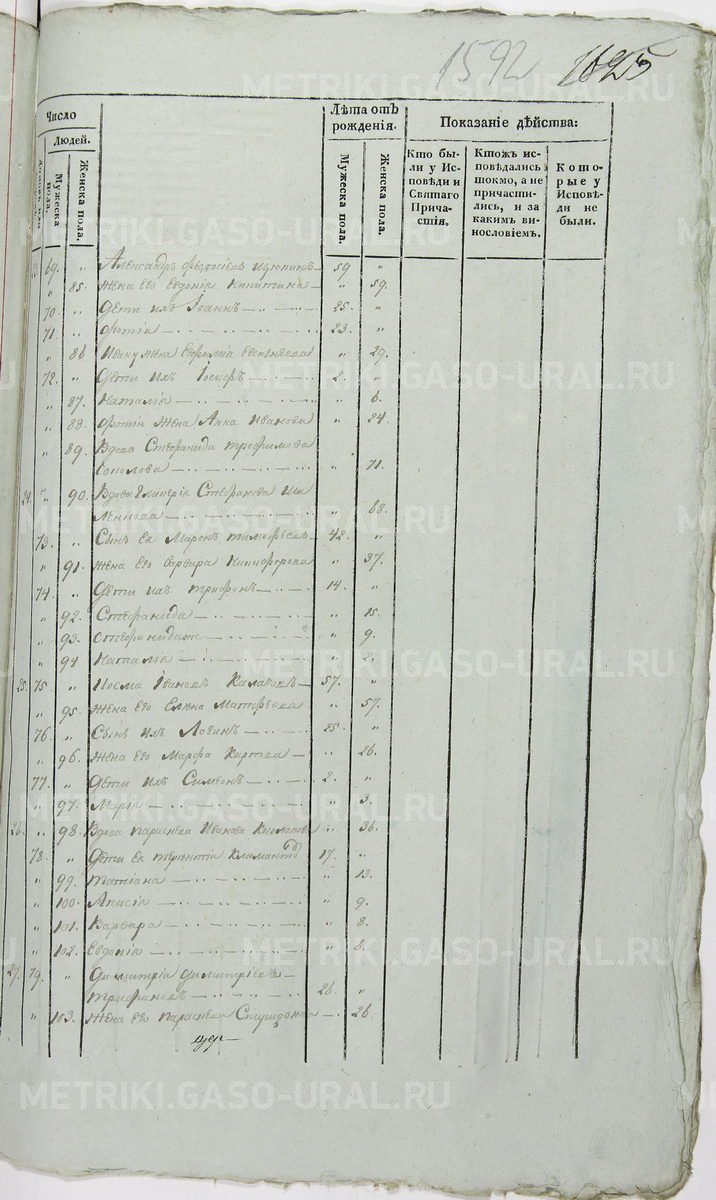 1592 1625
Число
Людей.
Мужеска пола.
Женска пола.
Лѣта отъ рожденія.
Мужеска пола.
Женска пола.
Показаніе дѣйства:
Кто бы-
ли у Ис-
повѣди и
Святаго
Прича-
стія.
Ктожъ ис-
повѣдались
токмо, а не
причасти-
лись, и за
какимъ ви-
нословіемъ.
Кото-
рые у
Исповѣ-
ди не
были.
69. „ Александръ Феодосіевъ 59 „
„ 85. Жена его Евдокія Никитина „ 59.
70. „ Дѣти ихъ Іоаннъ 25. „
71. „ Фотій 23. „
„ 86 Ивану жена Евфимія „ 29.
72. „ Дѣти ихъ Іосифъ 2. „
„ 87. Наталія „ 6.
„ 88. Фотію жена Анна Иванова „ 24
„ 89. Вдова Стефанида Трофимова
„ 71.
24 „ 90. Вдова Гликерія Стефанова
„ 68.
73. „ Сынъ ея Миронъ Тимофеевъ 42. „
„ 91. Жена его Варвара Никифорова „ 37.
74. „ Дѣти ихъ Трифонъ 14. „
„ 92. Стефанида „ 15.
„ 93. Стефанида „ 9.
„ 94 Наталія „ 2.
25. 75. „ Козма Ивановъ 57. „
„ 95. Жена его Елена Матфеева „ 57.
76. „ Сынъ ихъ Логинъ 25. „
„ 96. Жена его Марфа Карпова „ 26.
77. „ Дѣти ихъ Симеонъ 2. „
„ 97. Марія „ 3.
26. „ 98. Вдова Параскева Иванова „ 36.
78. „ Дѣти ея Терентій 17. „
„ 99. Татіана „ 13.
„ 100. Анисія „ 9.
„ 101. Варвара „ 8.
„ 102. Евдокія „ 8.
27. 79. „ Димитрій Димитріевъ
Трифановъ 26. „
„ 103. Жена его Параскева Спиридонова 26.
METRIKI.GASO-URAL.RU